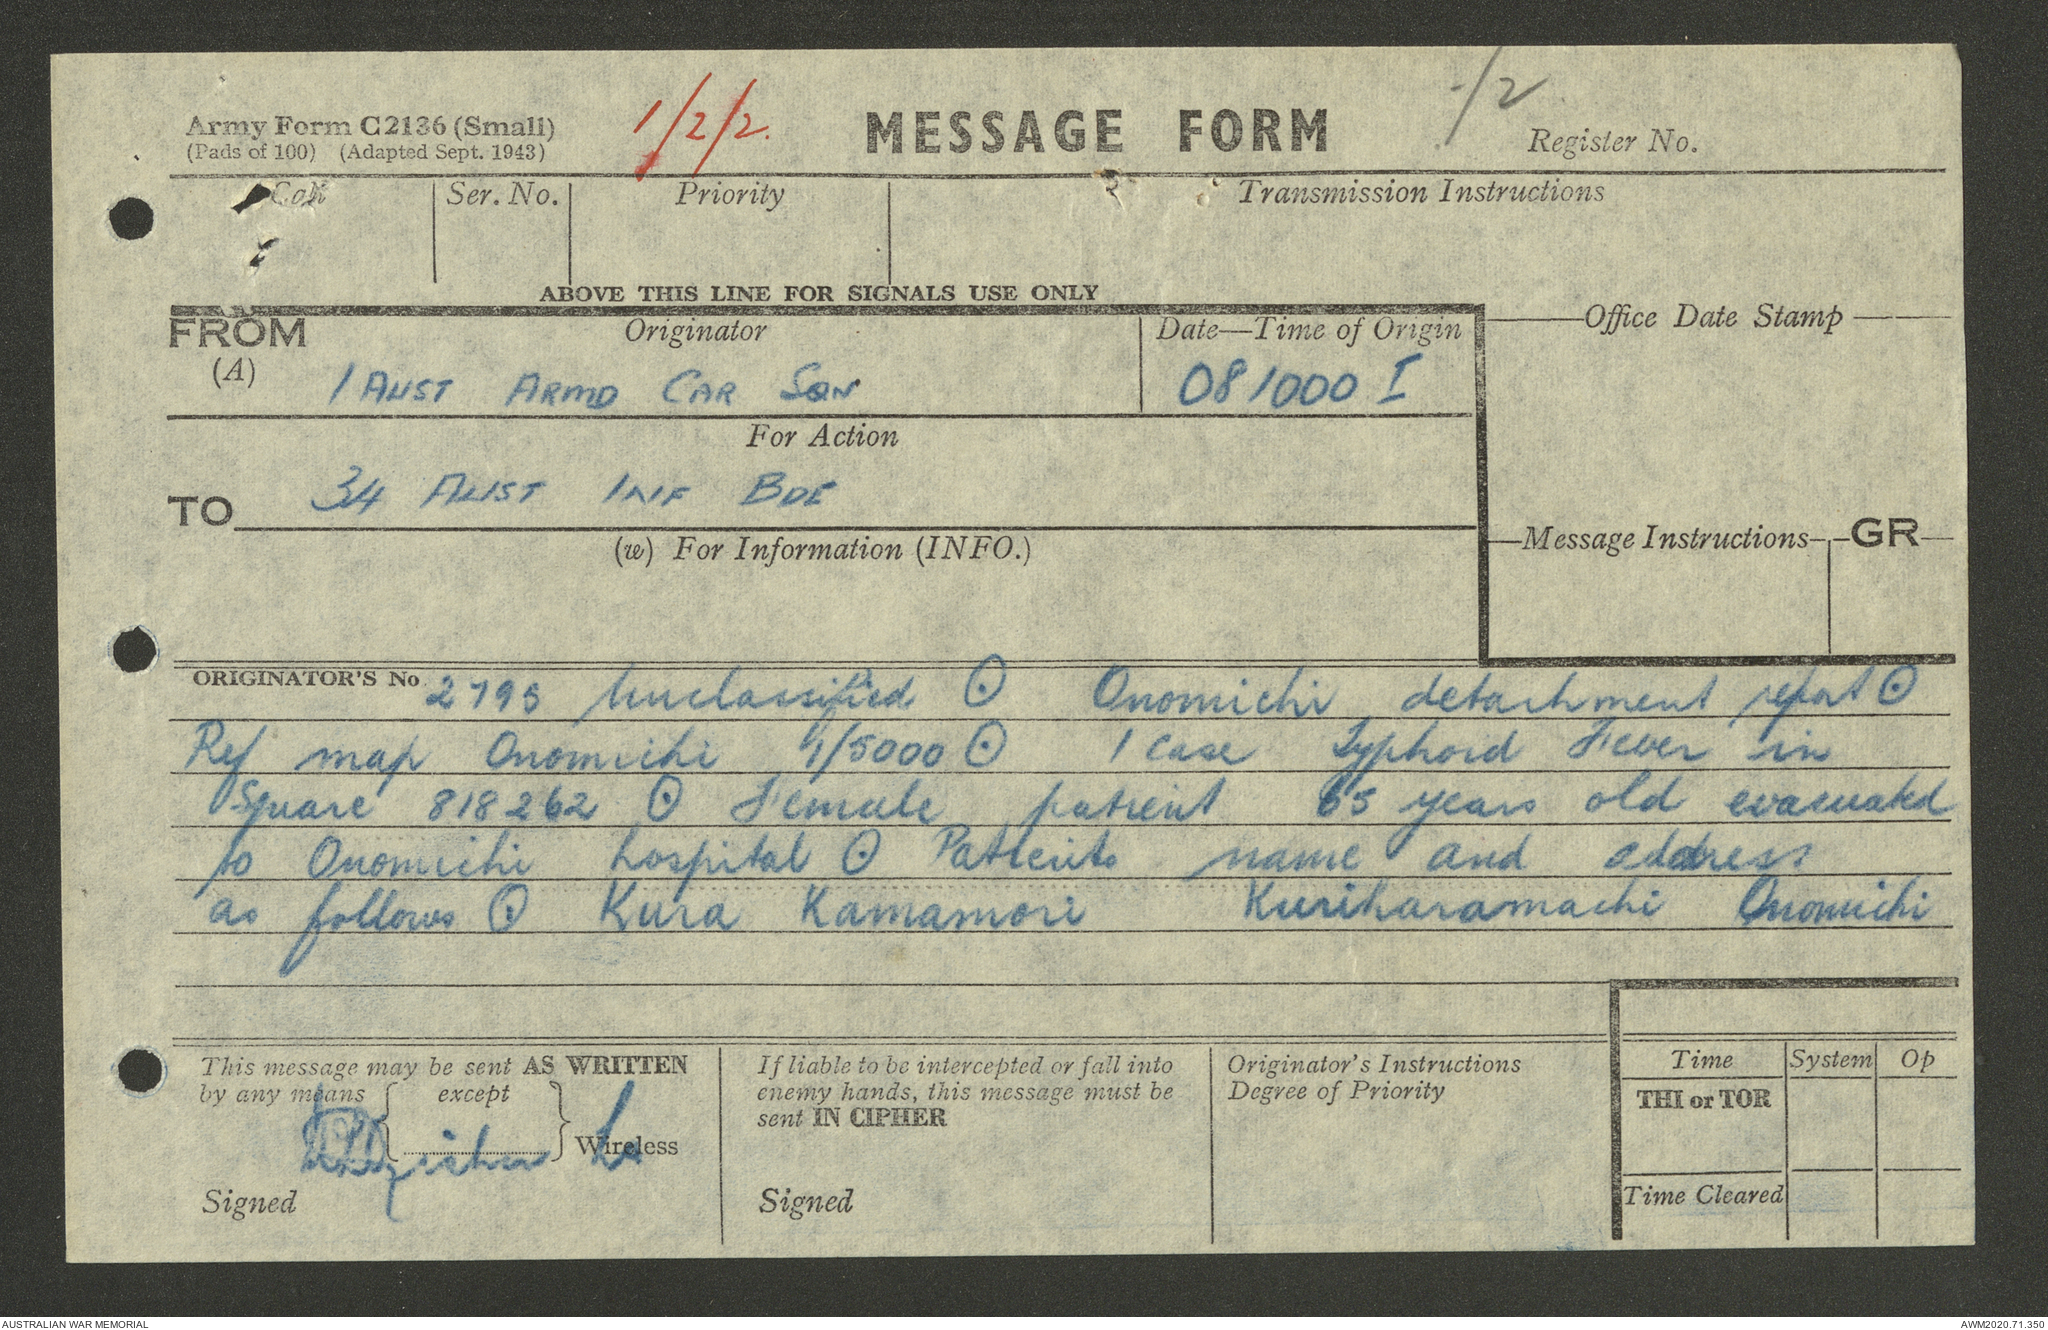 Army Form C2136 (Small)
(Pads of 100) (Adapted Sept. 1943)
1/2/2.
MESSAGE FORM
-/2
Register No.
Call
Ser. No.
Priority
Transmission Instructions
ABOVE THIS LINE FOR SIGNALS USE ONLY
FROM
(A)
Originator
Date—Time of Origin
Office Date Stamp
1 AUST ARMD CAR SQN
081000 I
For Action
TO
34 AUST INF BDE
(w) For Information (INFO.)
Message Instructions
GR
ORIGINATOR'S No 2795 Unclassified ⊙ Onomichi detachment report ⊙
Ref map Onomichi 1/5000 ⊙ 1 case Typhoid Fever in
Square 818262 ⊙ Female patient 65 years old evacuated
to Onomichi hospital ⊙ Patients name and address
as follows ⊙ Kura Kamamori Kuriharamachi Onomichi
This message may be sent AS WRITTEN
by any means except
Wireless
Signed
If liable to be intercepted or fall into
enemy hands, this message must be
sent IN CIPHER
Signed
Originator's Instructions
Degree of Priority
Time
System
Op
THI or TOR
Time Cleared
AUSTRALIAN WAR MEMORIAL
AWM2020.71.350